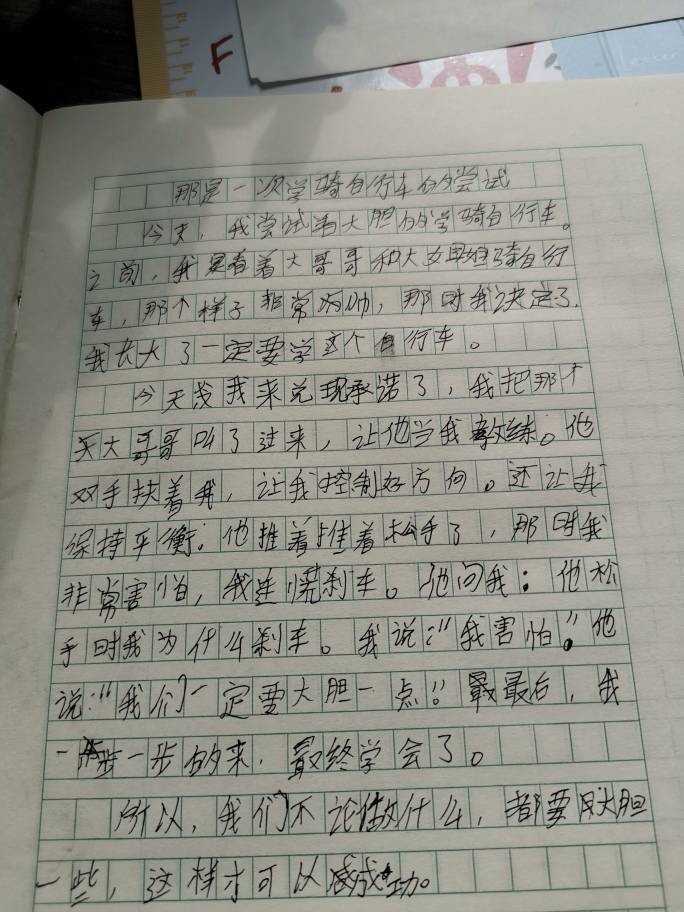 F
那是一次学骑自行车的尝试
今天，我尝试着大胆的学骑自行车。
之前，我是看着大哥哥和大姐姐骑自行
车，那个样子非常帅，那时我决定了.
我长大了一定要学这个自行车。
今天我来兑现承诺了，我把那个
天大哥哥叫了过来，让他当我教练。他
双手扶着我，让我控制好方向。还让我
保持平衡。他推着推着松手了，那时我
非常害怕，我连慌刹车。他问我：他松
手时我为什么刹车。我说：“我害怕。”他
说：“我们一定要大胆一点！”最后，我
一步一步的来，最终学会了。
所以，我们不论做什么，都要大胆
一些，这样才可以成功。